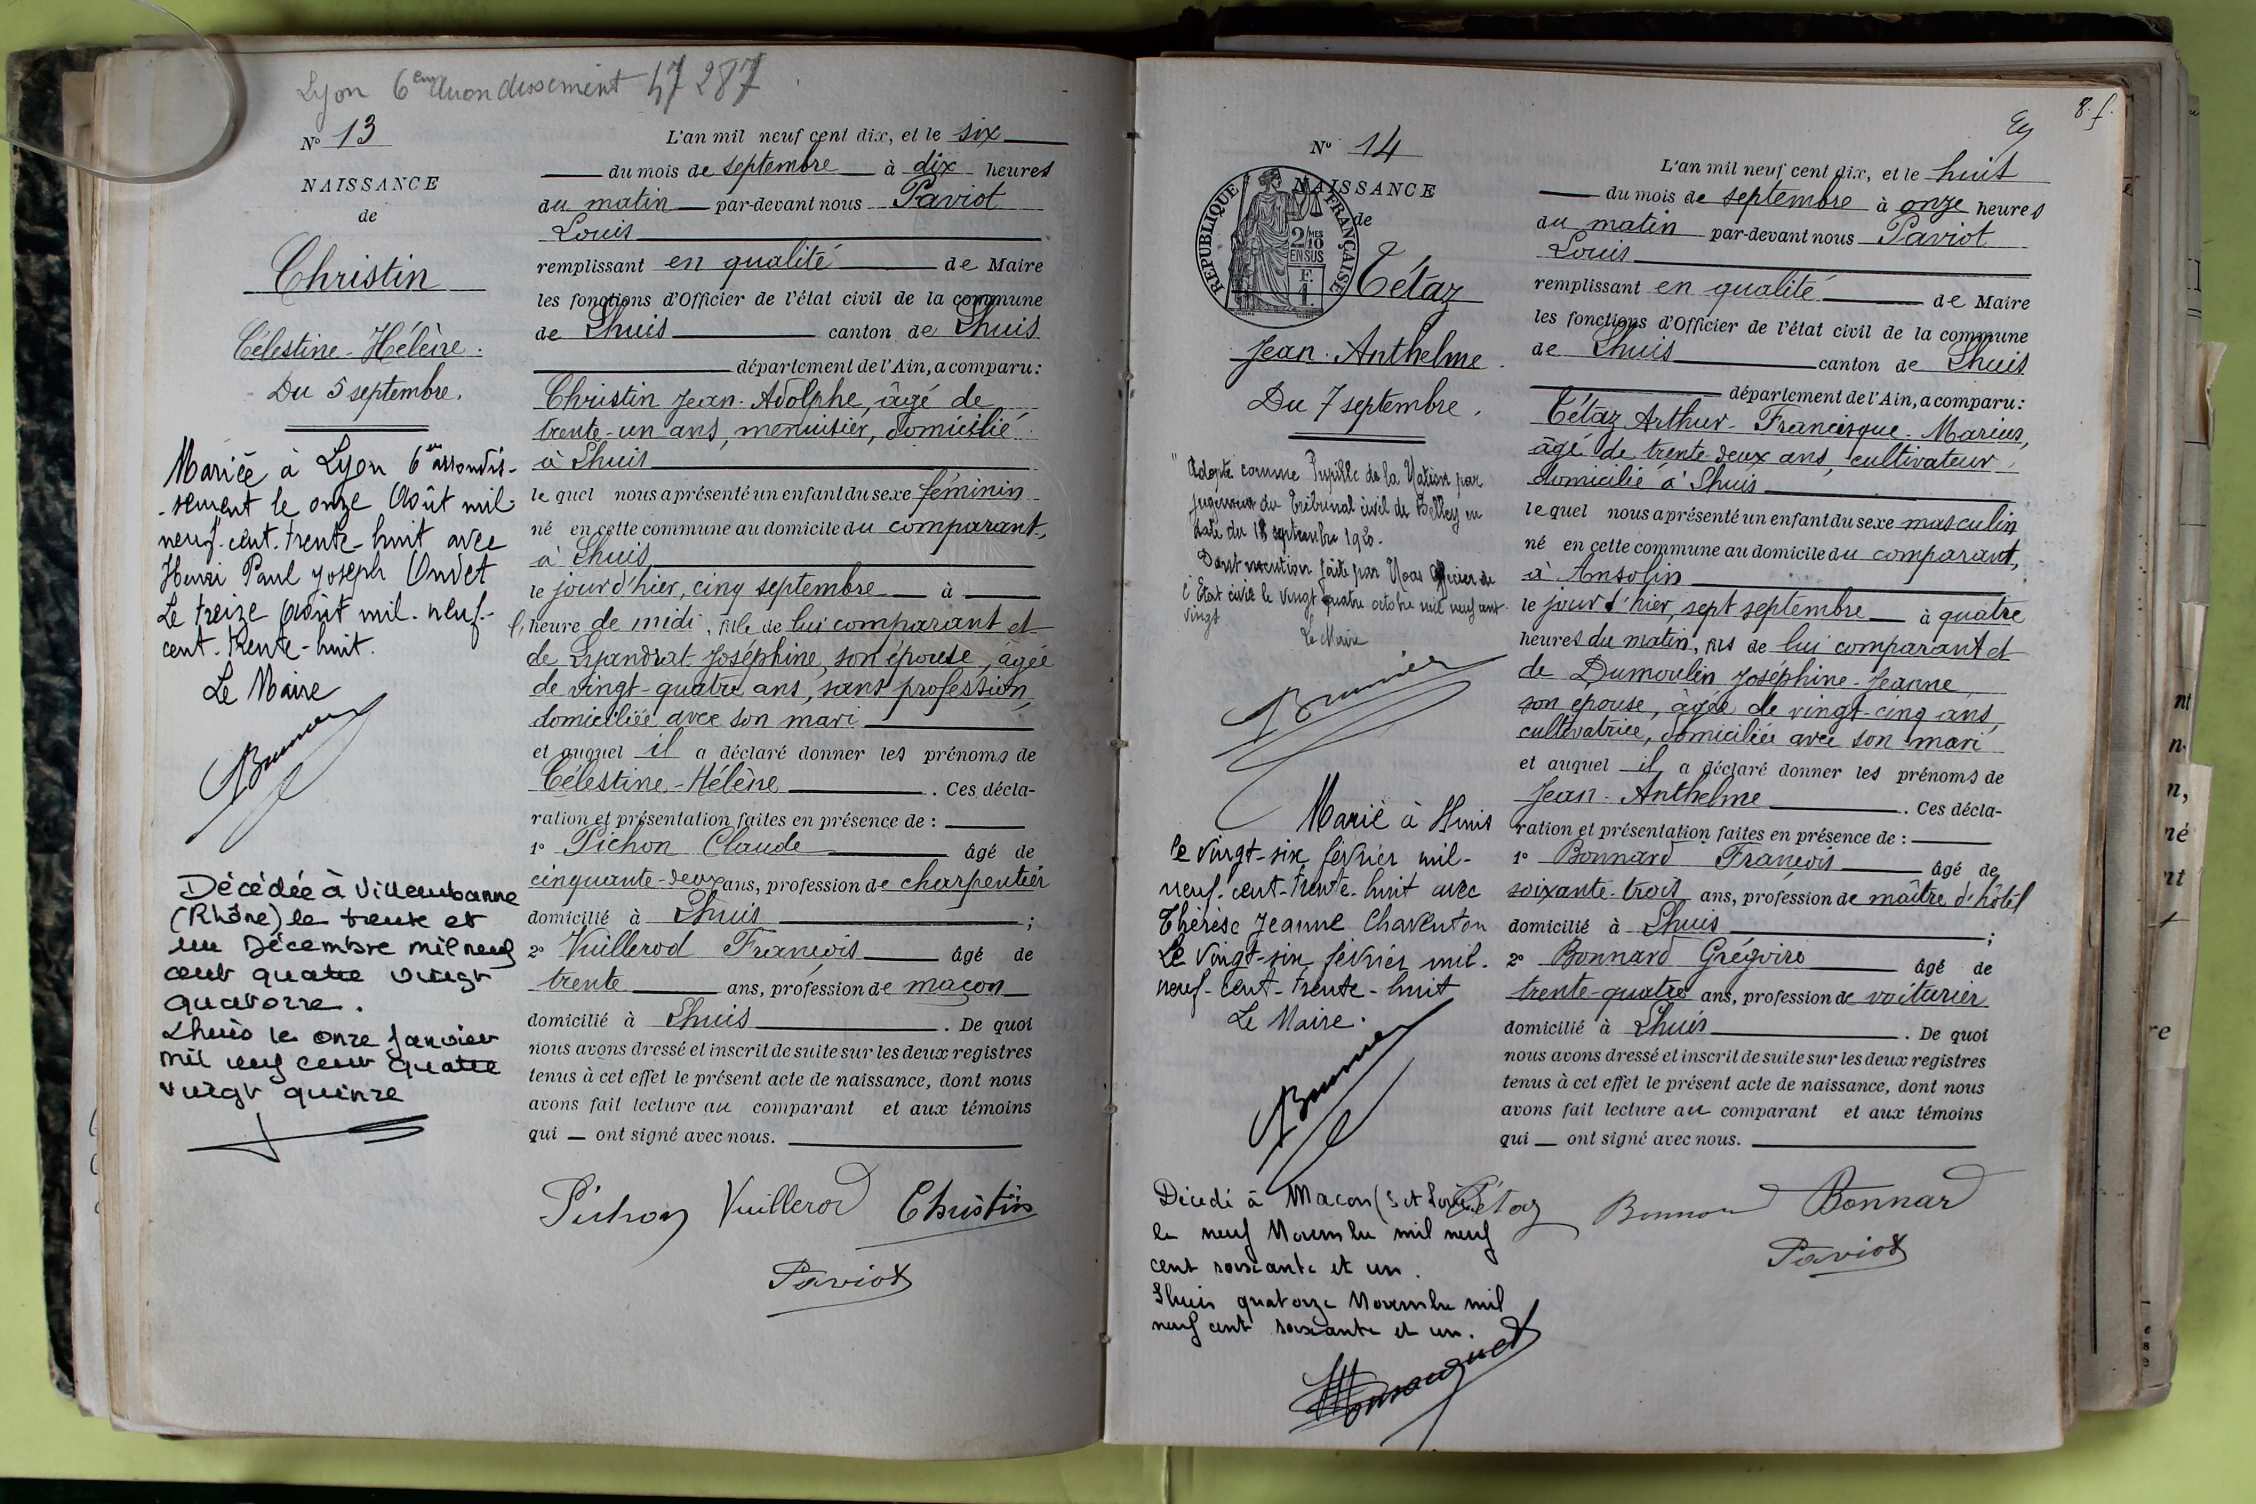 Lyon 6em arrondissement 47 287
N° 13
NAISSANCE
de
Christin
Célestine-Hélène.
Du 5 septembre.
Mariée à Lyon 6e arrondis-
-sement le onze Août mil-
neuf-cent-trente-huit avec
Henri Paul Joseph Oudet
Le treize Août mil-neuf-
cent-trente-huit.
Le Maire
Décédée à Villeurbanne
(Rhône) le trente et
un Décembre mil neuf
cent quatre vingt
quatorze.
Lhuis le onze janvier
mil neuf cent quatre
vingt quinze
L'an mil neuf cent dix, et le six
du mois de septembre à dix heures
du matin par-devant nous Paviot
Louis
remplissant en qualité de Maire
les fonctions d'Officier de l'état civil de la commune
de Lhuis canton de Lhuis
département de l'Ain, a comparu:
Christin Jean-Adolphe, âgé de
trente-un ans, menuisier, domicilié
à Lhuis
le quel nous a présenté un enfant du sexe féminin
né en cette commune au domicile du comparant,
à Lhuis
le jour d'hier, cinq septembre à
l'heure de midi, fille de lui comparant et
de Lyandrat Joséphine, son épouse, âgée
de vingt-quatre ans, sans profession,
domiciliée avec son mari
et auquel il a déclaré donner les prénoms de
Célestine-Hélène. Ces décla-
ration et présentation faites en présence de :
1° Pichon Claude âgé de
cinquante-deux ans, profession de charpentier
domicilié à Lhuis ;
2° Vuillerod François âgé de
trente ans, profession de maçon
domicilié à Lhuis. De quoi
nous avons dressé et inscrit de suite sur les deux registres
tenus à cet effet le présent acte de naissance, dont nous
avons fait lecture au comparant et aux témoins
qui — ont signé avec nous.
Pichon Vuillerod Christin
Paviot
8. f.
N° 14
NAISSANCE
de
RÉPUBLIQUE FRANÇAISE
2/10 MES
EN SUS
Tétaz
Jean-Anthelme.
Du 7 septembre.
"Adopté comme Pupille de la Nation par
jugement du Tribunal civil de Belley en
date du 18 septembre 1920.
Dont mention faite par Nous Officier de
l'Etat civil le vingt quatre octobre mil neuf cent
vingt
Le Maire
Marié à Lhuis
le vingt-six février mil-
neuf-cent-trente-huit avec
Thérèse Jeanne Charenton
Le vingt-six février mil-
neuf-cent-trente-huit
Le Maire.
Décédé à Macon (S et Loire)
le neuf Novembre mil neuf
cent soixante et un.
Lhuis quatorze Novembre mil
neuf cent soixante et un.
L'an mil neuf cent dix, et le huit
du mois de septembre à onze heures
du matin par-devant nous Paviot
Louis
remplissant en qualité de Maire
les fonctions d'Officier de l'état civil de la commune
de Lhuis canton de Lhuis
département de l'Ain, a comparu:
Tétaz Arthur-Francisque-Marius,
âgé de trente-deux ans, cultivateur,
domicilié à Lhuis
le quel nous a présenté un enfant du sexe masculin
né en cette commune au domicile du comparant,
à Ansolin
le jour d'hier, sept septembre à quatre
heures du matin, fils de lui comparant et
de Dumoulin Joséphine-Jeanne
son épouse, âgée de vingt-cinq ans,
cultivatrice, domiciliée avec son mari
et auquel il a déclaré donner les prénoms de
Jean-Anthelme. Ces décla-
ration et présentation faites en présence de :
1° Bonnard François âgé de
soixante-trois ans, profession de maître d'hôtel
domicilié à Lhuis ;
2° Bonnard Grégoire âgé de
trente-quatre ans, profession de voiturier
domicilié à Lhuis. De quoi
nous avons dressé et inscrit de suite sur les deux registres
tenus à cet effet le présent acte de naissance, dont nous
avons fait lecture au comparant et aux témoins
qui — ont signé avec nous.
Tétaz Bonnard Bonnard
Paviot